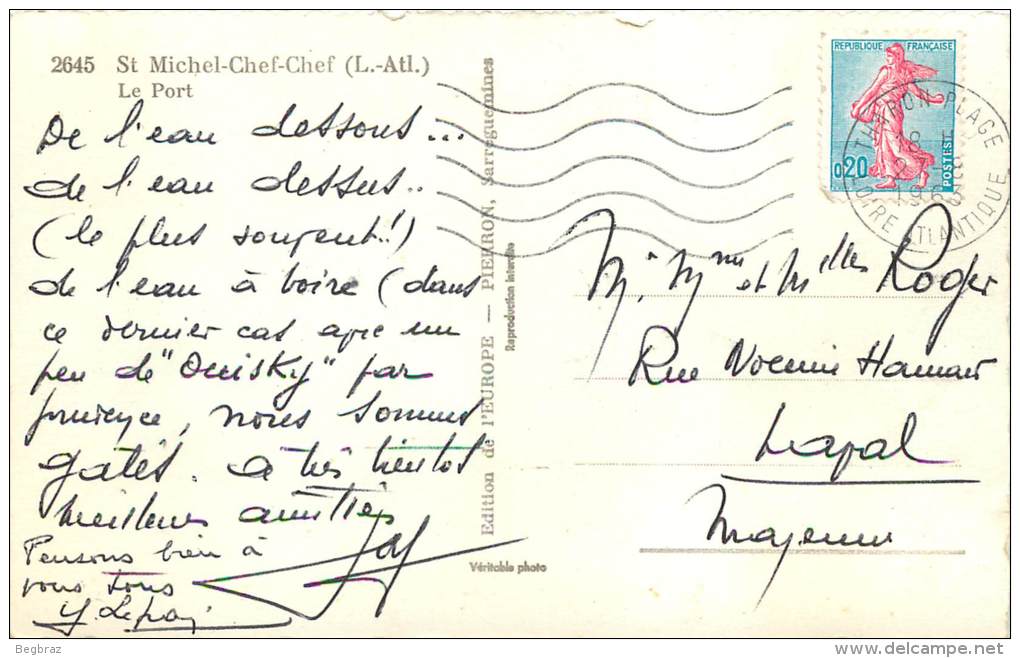 2645 St Michel-Chef-Chef (L.-Atl.)
Le Port
De l'eau dessous...
de l'eau dessus..
(le plus souvent..!)
de l'eau à boire (dans
ce dernier cas avec un
peu de "Ouisky" par
prudence, nous sommes
gatés. à très bientot
meilleures amitiés
Pensons bien à
vous tous
Edition de l'EUROPE — PIERRON, Sarreguemines
Reproduction interdite
Véritable photo
REPUBLIQUE FRANÇAISE
0,20
POSTES
THARON PLAGE
18 H
LOIRE ATLANTIQUE
M. Mme et Melles Roger
Rue Noemie Hamard
Laval
Mayenne
Begbraz
www.delcampe.net